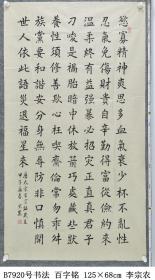 慾寡精神爽思多血氣衰少杯不亂性
忍氣免傷財貴自辛勤得富從儉約來
溫柔終有益强暴必招災正直真君子
刁唆是禍胎暗中休放箭處藏些獃
養性須修善欺心枉喫齋倫常勿乖舛
族黨要和諧安分身無辱防非口慎開
世人依此語災退福星來
B7920号书法 百字铭 125×68cm 李宗农